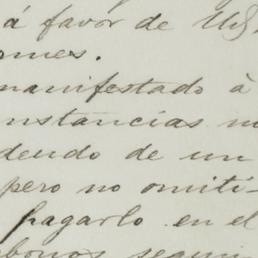 á favor de
manifestado à
nstancias
deudo de un
pero no omiti-
pagarlo en el
bonos segun